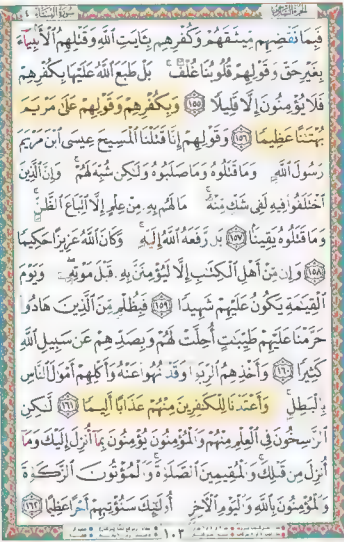 سُورَةُ النِّسَاءِ ٤
فَبِمَا نَقْضِهِم مِّيثَٰقَهُمْ وَكُفْرِهِم بِـَٔايَٰتِ ٱللَّهِ وَقَتْلِهِمُ ٱلْأَنۢبِيَآءَ
بِغَيْرِ حَقٍّ وَقَوْلِهِمْ قُلُوبُنَا غُلْفٌۢ ۚ بَلْ طَبَعَ ٱللَّهُ عَلَيْهَا بِكُفْرِهِمْ
فَلَا يُؤْمِنُونَ إِلَّا قَلِيلًا ﴿١٥٥﴾ وَبِكُفْرِهِمْ وَقَوْلِهِمْ عَلَىٰ مَرْيَمَ
بُهْتَٰنًا عَظِيمًا ﴿١٥٦﴾ وَقَوْلِهِمْ إِنَّا قَتَلْنَا ٱلْمَسِيحَ عِيسَى ٱبْنَ مَرْيَمَ
رَسُولَ ٱللَّهِ وَمَا قَتَلُوهُ وَمَا صَلَبُوهُ وَلَٰكِن شُبِّهَ لَهُمْ ۚ وَإِنَّ ٱلَّذِينَ
ٱخْتَلَفُوا۟ فِيهِ لَفِى شَكٍّ مِّنْهُ ۚ مَا لَهُم بِهِۦ مِنْ عِلْمٍ إِلَّا ٱتِّبَاعَ ٱلظَّنِّ ۚ
وَمَا قَتَلُوهُ يَقِينًۢا ﴿١٥٧﴾ بَل رَّفَعَهُ ٱللَّهُ إِلَيْهِ ۚ وَكَانَ ٱللَّهُ عَزِيزًا حَكِيمًا
﴿١٥٨﴾ وَإِن مِّنْ أَهْلِ ٱلْكِتَٰبِ إِلَّا لَيُؤْمِنَنَّ بِهِۦ قَبْلَ مَوْتِهِۦ ۖ وَيَوْمَ
ٱلْقِيَٰمَةِ يَكُونُ عَلَيْهِمْ شَهِيدًا ﴿١٥٩﴾ فَبِظُلْمٍ مِّنَ ٱلَّذِينَ هَادُوا۟
حَرَّمْنَا عَلَيْهِمْ طَيِّبَٰتٍ أُحِلَّتْ لَهُمْ وَبِصَدِّهِمْ عَن سَبِيلِ ٱللَّهِ
كَثِيرًا ﴿١٦٠﴾ وَأَخْذِهِمُ ٱلرِّبَوٰا۟ وَقَدْ نُهُوا۟ عَنْهُ وَأَكْلِهِمْ أَمْوَٰلَ ٱلنَّاسِ
بِٱلْبَٰطِلِ ۚ وَأَعْتَدْنَا لِلْكَٰفِرِينَ مِنْهُمْ عَذَابًا أَلِيمًا ﴿١٦١﴾ لَّٰكِنِ
ٱلرَّٰسِخُونَ فِى ٱلْعِلْمِ مِنْهُمْ وَٱلْمُؤْمِنُونَ يُؤْمِنُونَ بِمَآ أُنزِلَ إِلَيْكَ وَمَآ
أُنزِلَ مِن قَبْلِكَ ۚ وَٱلْمُقِيمِينَ ٱلصَّلَوٰةَ ۚ وَٱلْمُؤْتُونَ ٱلزَّكَوٰةَ
وَٱلْمُؤْمِنُونَ بِٱللَّهِ وَٱلْيَوْمِ ٱلْءَاخِرِ أُو۟لَٰٓئِكَ سَنُؤْتِيهِمْ أَجْرًا عَظِيمًا ﴿١٦٢﴾
١٠٣